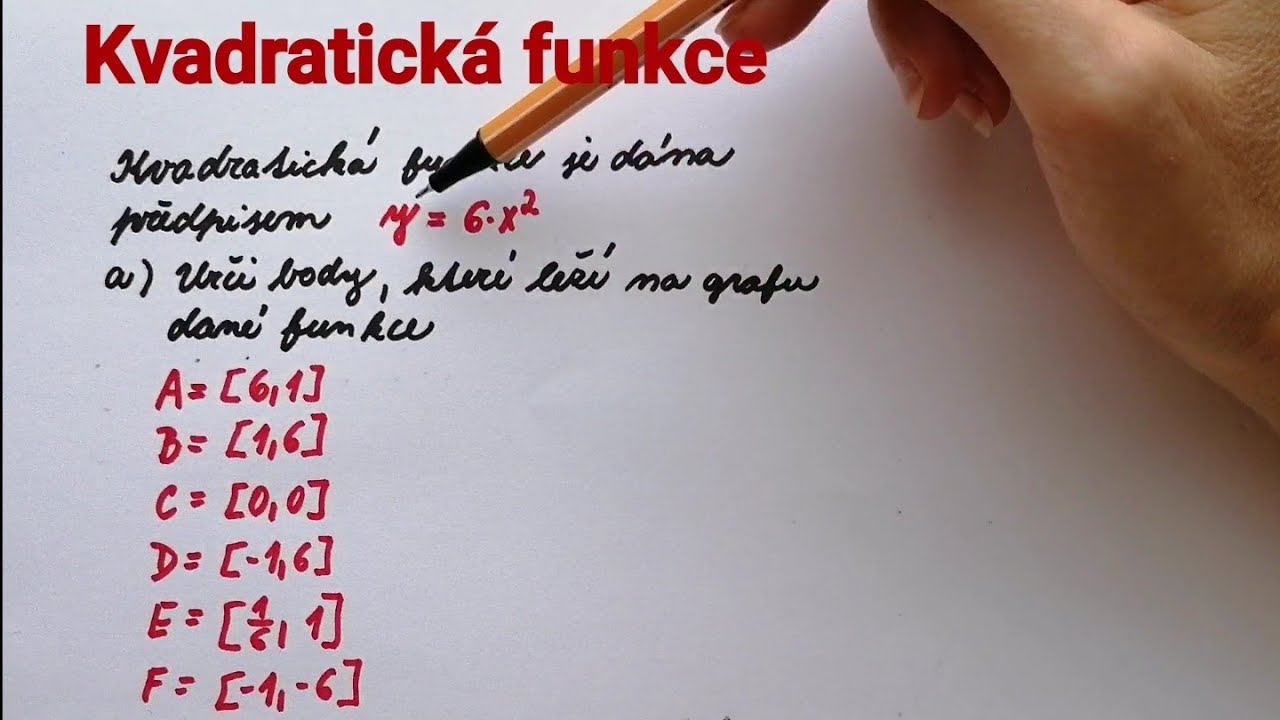 Kvadratická funkce
Kvadratická funkce je dána
předpisem y = 6·x²
a) Urči body, které leží na grafu
dané funkce
A = [6,1]
B = [1,6]
C = [0,0]
D = [-1,6]
E = [1/6, 1]
F = [-1,-6]